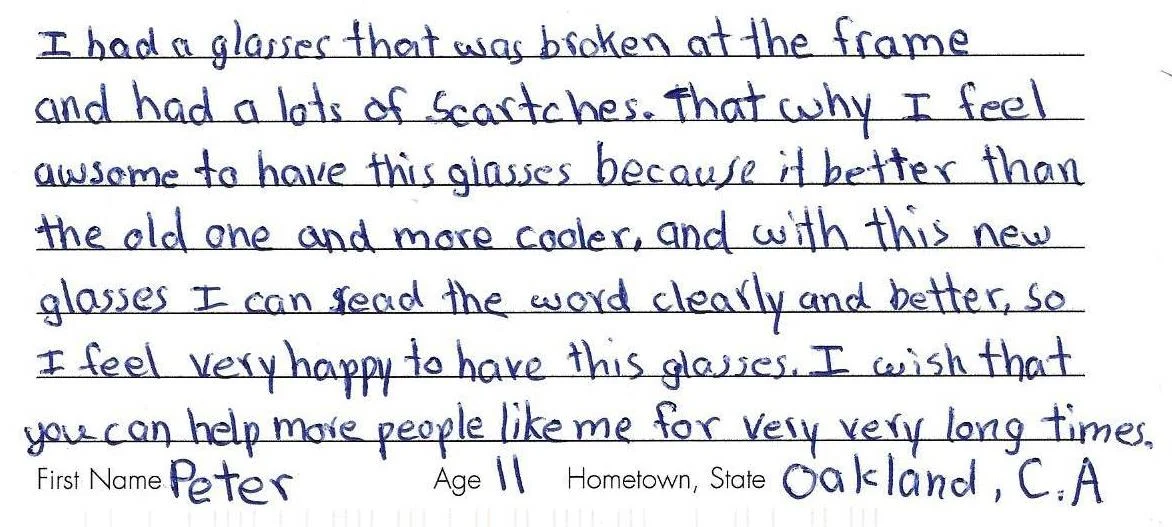 I had a glasses that was broken at the frame
and had a lots of Scartches. That why I feel
awsome to have this glasses because it better than
the old one and more cooler, and with this new
glasses I can read the word clearly and better, so
I feel very happy to have this glasses. I wish that
you can help more people like me for very very long times.
First Name Peter Age 11 Hometown, State Oakland, C.A